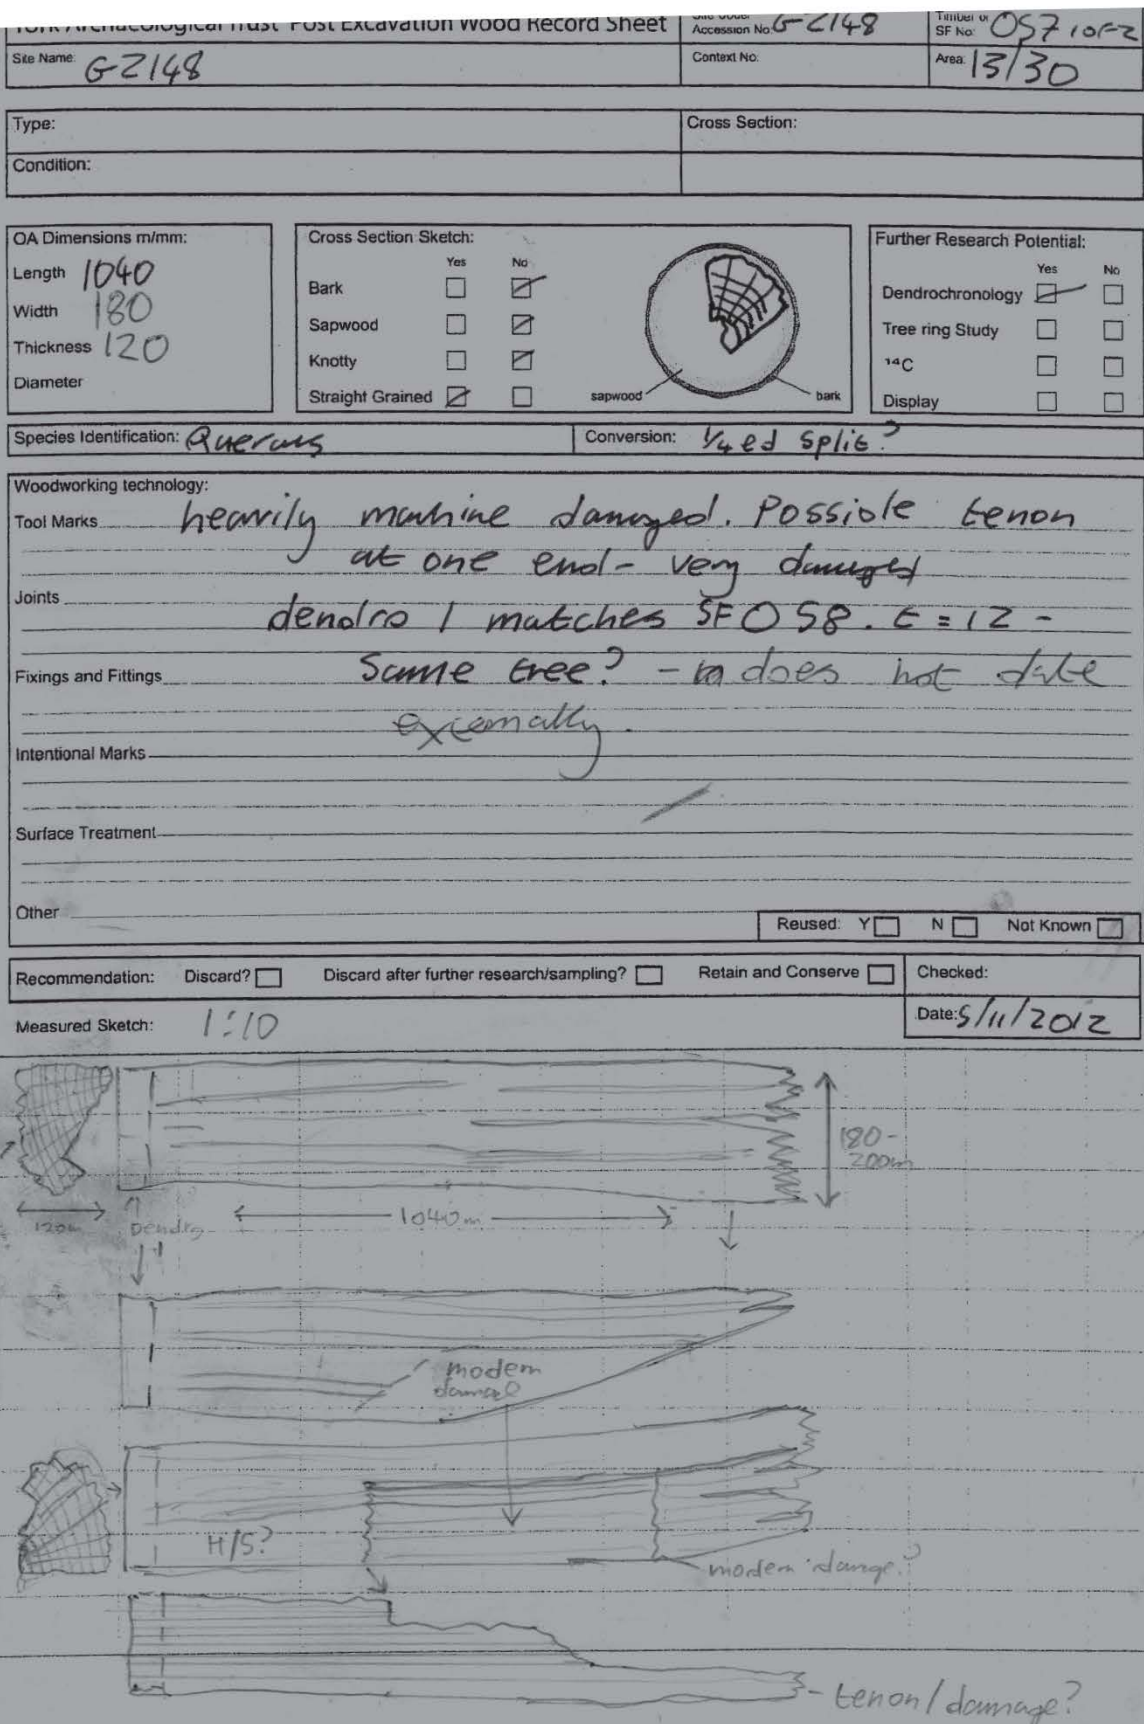 York Archaeological Trust Post Excavation Wood Record Sheet
Accession No: GZ148
Timber or
SF No: 057 1 OF 2
Site Name: GZ148
Context No:
Area: 13/30
Type:
Cross Section:
Condition:
OA Dimensions m/mm:
Length 1040
Width 180
Thickness 120
Diameter
Cross Section Sketch:
Yes No
Bark
Sapwood
Knotty
Straight Grained
sapwood
bark
Further Research Potential:
Yes No
Dendrochronology
Tree ring Study
¹⁴C
Display
Species Identification: Quercus
Conversion: 1/4ed split?
Woodworking technology:
Tool Marks heavily machine damaged. Possible tenon
at one end - very damaged
Joints
dendro / matches SF058. t=12 -
Fixings and Fittings same tree? - does not date
externally.
Intentional Marks
Surface Treatment
Other
Reused: Y N Not Known
Recommendation: Discard? Discard after further research/sampling? Retain and Conserve
Checked:
Measured Sketch: 1:10
Date: 5/11/2012
180-
200m
120m
Dendro
1040m
modern
damage
H/S?
modern damage?
- tenon/damage?